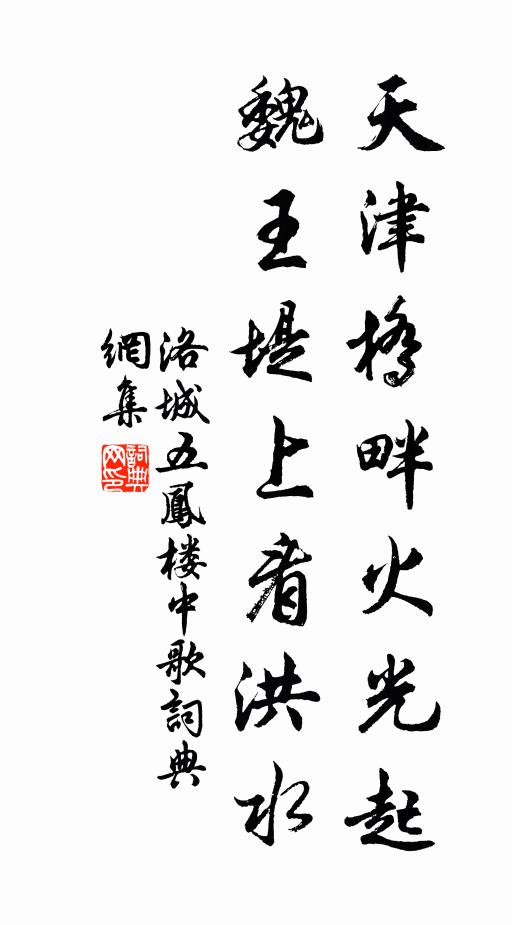 天津橋畔火光起
魏王堤上看洪水
洛城五鳳楼中歌詞典
網集
詞典
网印